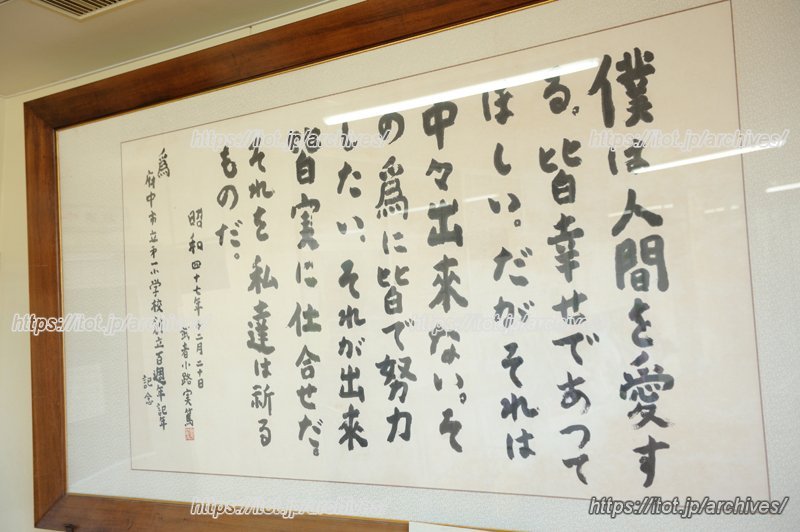 僕は人間を愛す
る。皆幸せであつて
ほしい。だがそれは
中々出来ない。そ
の為に皆で努力
したい、それが出来
皆実に仕合せだ。
それを私達は祈る
ものだ。
昭和四十七年十二月二十日
武者小路実篤
為
府中市立第一小学校創立百週年記年
記念
https://itot.jp/archives/
https://itot.jp/archives/
https://itot.jp/archives/
https://itot.jp/archives/
https://itot.jp/archives/
https://itot.jp/archives/